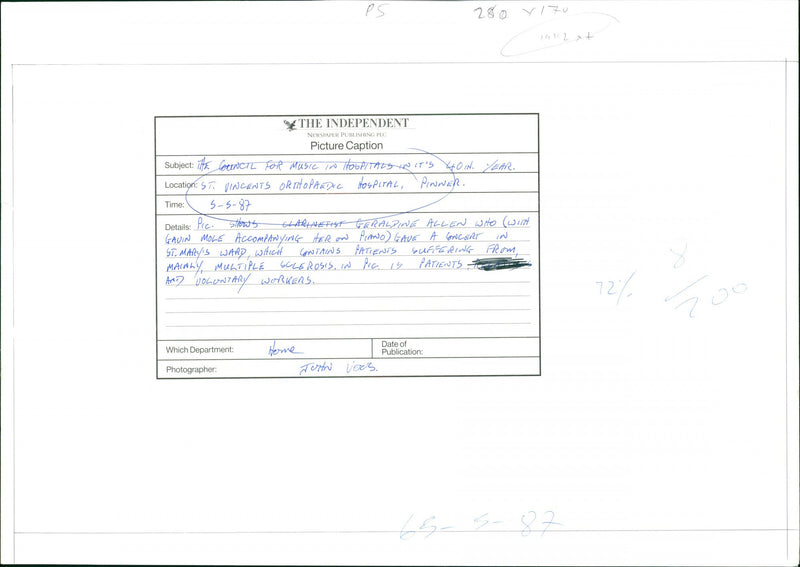 PS 280 x 170
THE INDEPENDENT
NEWSPAPER PUBLISHING PLC
Picture Caption
Subject: THE COUNCIL FOR MUSIC IN HOSPITALS IN IT'S 40TH. YEAR.
Location: ST. VINCENTS ORTHOPAEDIC HOSPITAL, PINNER.
Time: 5-5-87
Details: PIC. SHOWS CLARINETIST GERALDINE ALLEN WHO (WITH
GAVIN MOLE ACCOMPANYING HER ON PIANO) GAVE A CONCERT IN
ST. MARY'S WARD, WHICH CONTAINS PATIENTS SUFFERING FROM,
MAINLY, MULTIPLE SCLEROSIS. IN PIC. IS PATIENTS
AND VOLUNTARY WORKERS.
72%
8/200
Which Department: Home
Date of
Publication:
Photographer: JOHN VOOS.
5-87